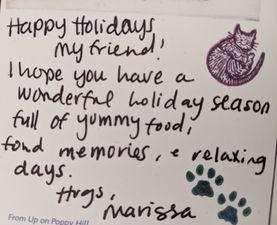 Happy Holidays
my friend!
I hope you have a
wonderful holiday season
full of yummy food,
fond memories, & relaxing
days.
Hugs,
Marissa
From Up on Poppy Hill